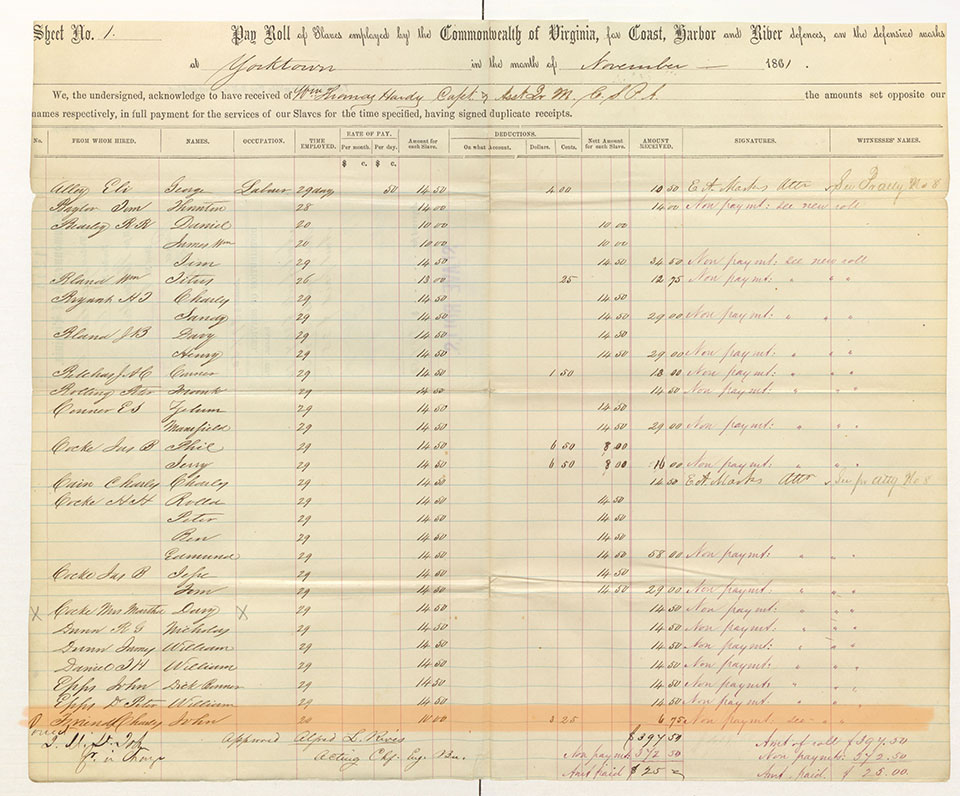 Sheet No. 1. Pay Roll of Slaves employed by the Commonwealth of Virginia, for Coast, Harbor and River defences, on the defensive works
at Yorktown in the month of November 1861.
We, the undersigned, acknowledge to have received of Wm Thomas Hardy Capt & Asst Qr M. C. S. P. A. the amounts set opposite our
names respectively, in full payment for the services of our Slaves for the time specified, having signed duplicate receipts.
No. FROM WHOM HIRED. NAMES. OCCUPATION. TIME EMPLOYED. RATE OF PAY. Per month. Per day. Amount for each Slave. DEDUCTIONS. On what Account. Dollars. Cents. Nett Amount for each Slave. AMOUNT RECEIVED. SIGNATURES. WITNESSES' NAMES.
$ c. $ c.
Eli George Labour 29 days 50 14 50 4 00 10 50 E A Marks Atto See No 8
Tom Thornton 28 14 00 14 00 Non paymt: see new roll
R K Daniel 20 10 00 10 00
James Wm 20 10 00 10 00
Jim 29 14 50 14 50 34 50 Non paymt: see new roll
Bland Wm 26 13 00 25 12 75 Non paymt: " " "
Bryant H J Charles 29 14 50 14 50
Sandy 29 14 50 14 50 29 00 Non paymt: " " "
Bland J B Davy 29 14 50 14 50
Henry 29 14 50 14 50 29 00 Non paymt: " " "
29 14 50 1 50 13 00 Non paymt: " " "
Frank 29 14 50 14 50 Non paymt: " " "
Conner E S 29 14 50 14 50
Mansfield 29 14 50 14 50 29 00 Non paymt: " " "
Cocke Jas B Phil 29 14 50 6 50 8 00
Jerry 29 14 50 6 50 8 00 16 00 Non paymt: " " "
Cain Charles Charles 29 14 50 14 50 E A Marks Atto See No 8
Cocke H H Rolla 29 14 50 14 50
Peter 29 14 50 14 50
Ben 29 14 50 14 50
Edmund 29 14 50 14 50 58 00 Non paymt: " " "
Cocke Jas B 29 14 50 14 50
Tom 29 14 50 14 50 29 00 Non paymt: " " "
X Cocke Mrs Martha Davy X 29 14 50 14 50 Non paymt: " " "
Dunn R G Nicholas 29 14 50 14 50 Non paymt: " " "
Dunn William 29 14 50 14 50 Non paymt: " " "
Daniel William 29 14 50 14 50 Non paymt: " " "
Epps John Dick Conner 29 14 50 14 50 Non paymt: " " "
Epps Dr Peter William 29 14 50 14 50 Non paymt: " " "
Friend Charles John 20 10 00 3 25 6 75 Non paymt: see " "
Approved Alfred L. Rives $397 50 Amt of roll $397.50
Acting Chf. Eng. Bu. Non paymt 372 50 Non paymt: 372.50
Amt paid $25 Amt. paid. $25.00.